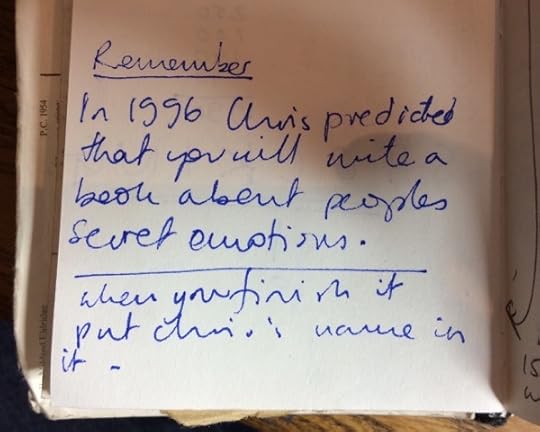 Remember
In 1996 Chris predicted
that you will write a
book about peoples
secret emotions.
when you finish it
put Chris's name in
it -
P.C. 1954